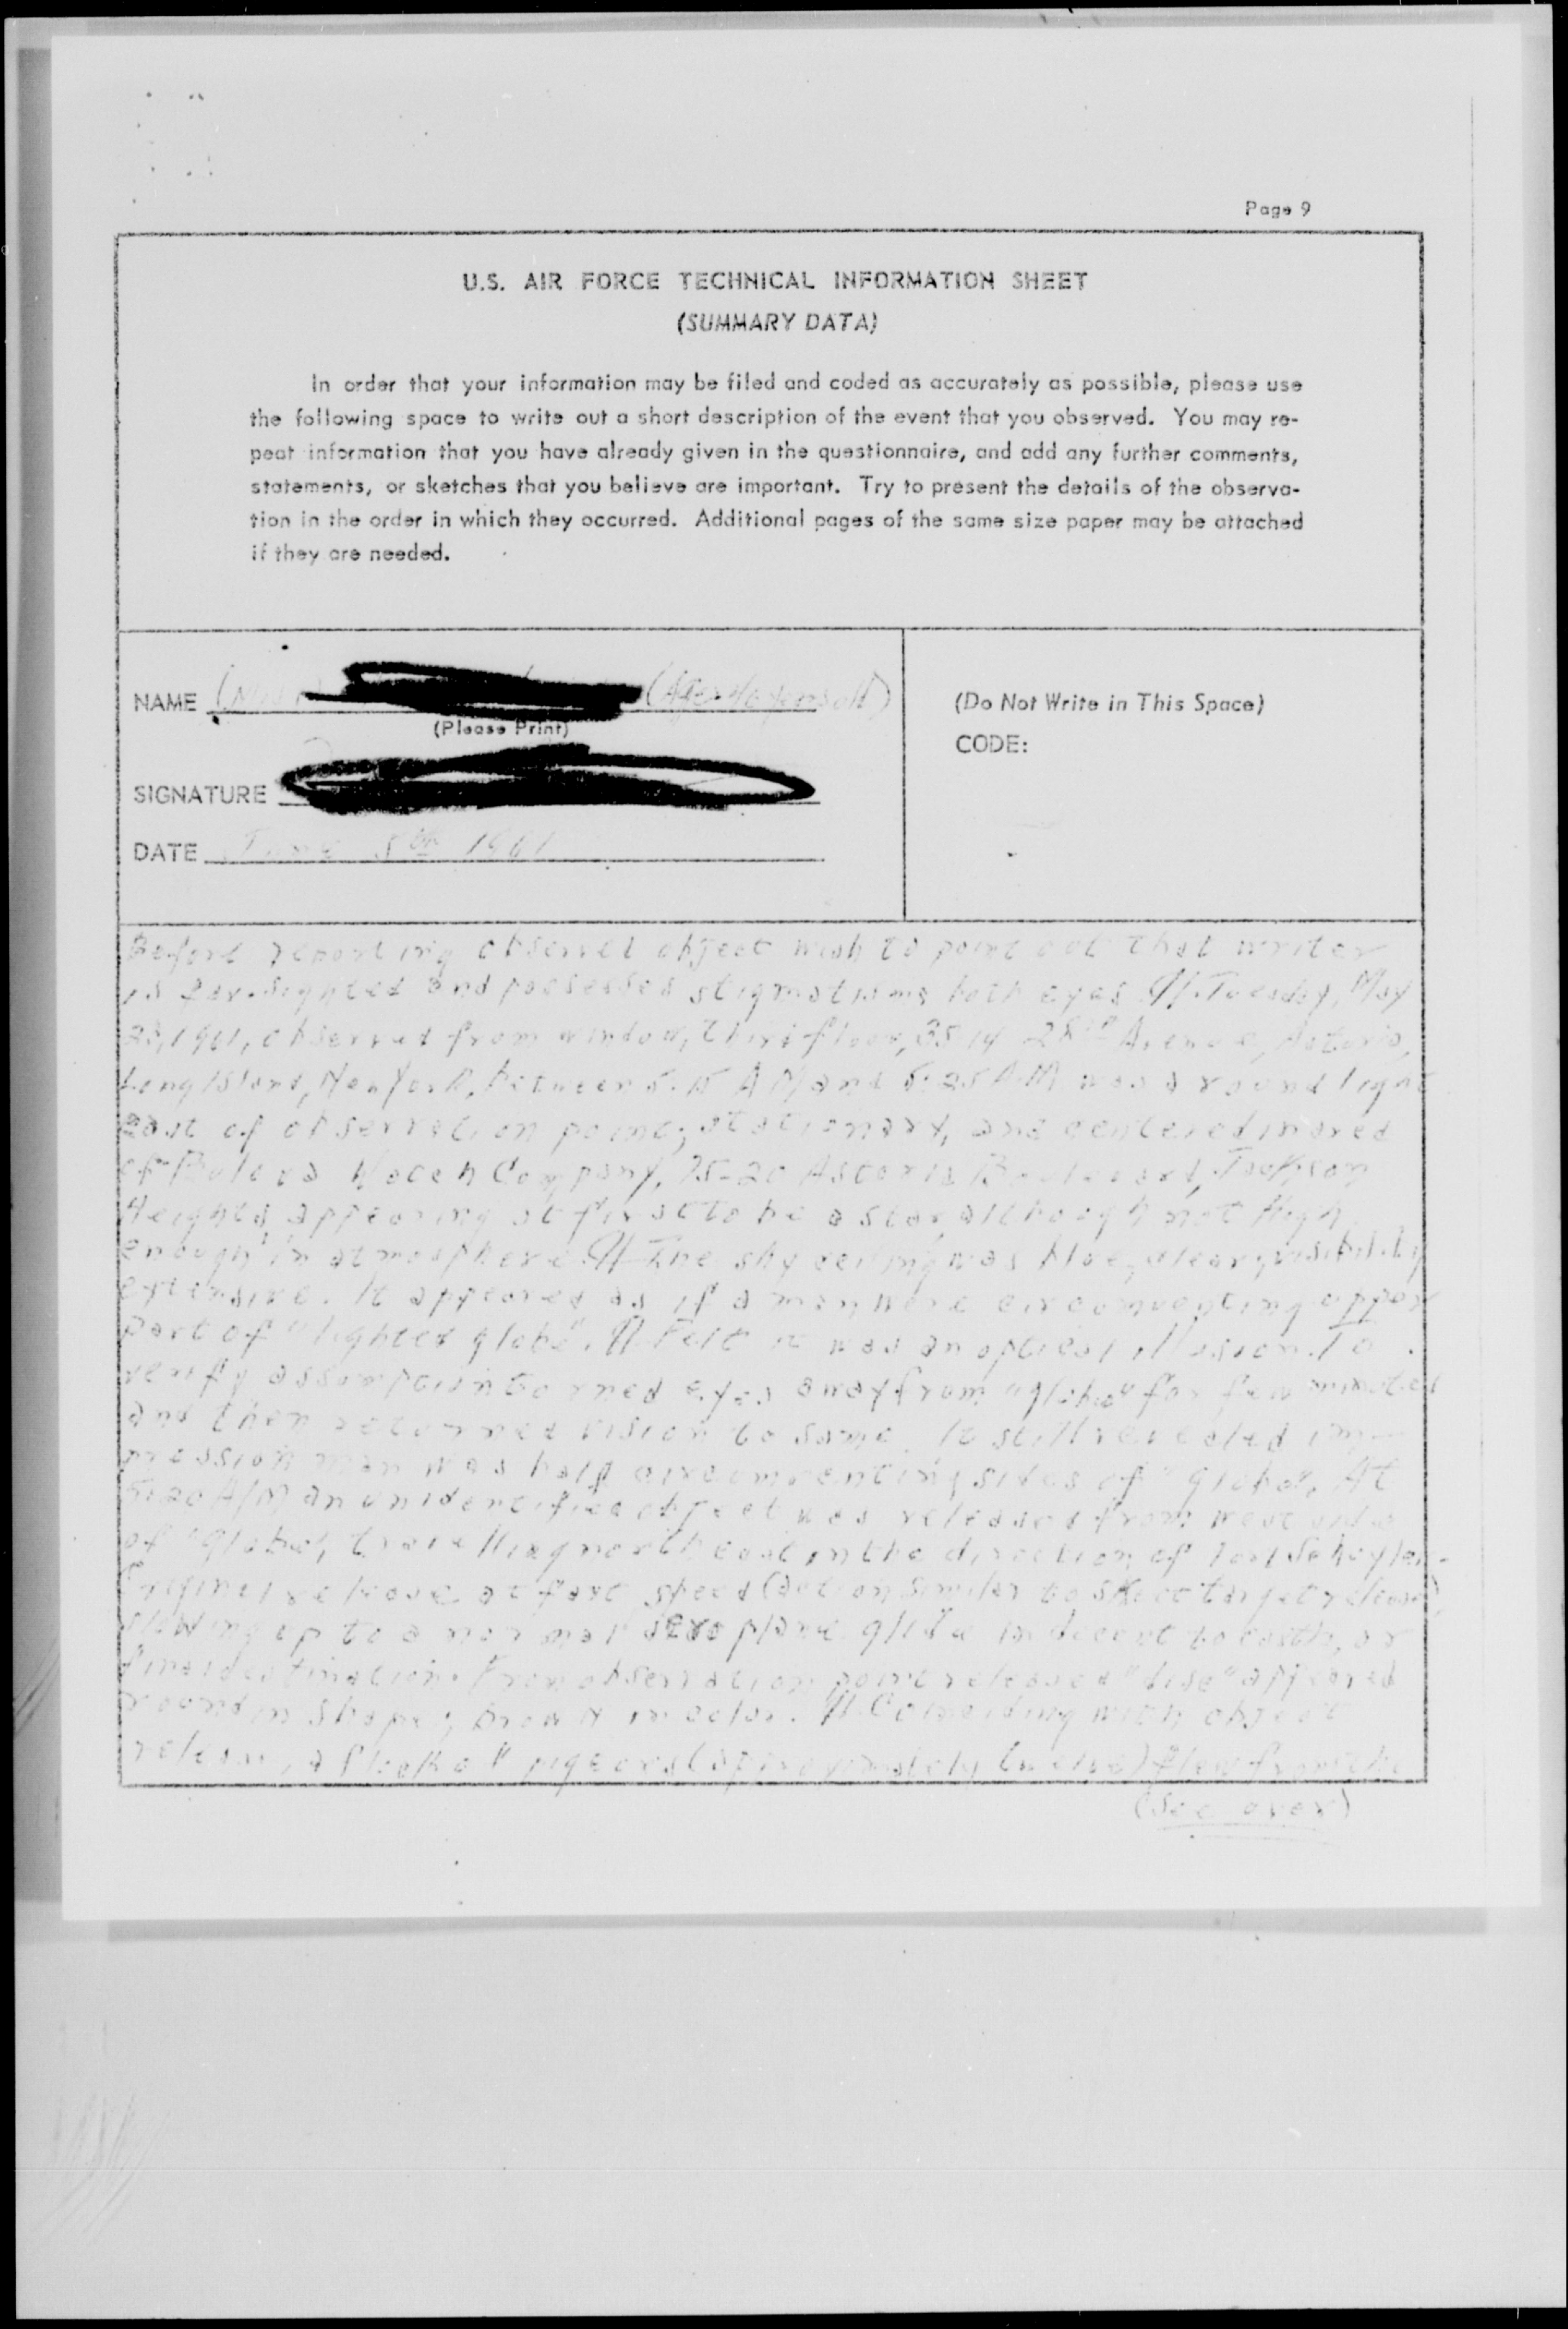 Page 9
U.S. AIR FORCE TECHNICAL INFORMATION SHEET
(SUMMARY DATA)
In order that your information may be filed and coded as accurately as possible, please use
the following space to write out a short description of the event that you observed. You may re-
peat information that you have already given in the questionnaire, and add any further comments,
statements, or sketches that you believe are important. Try to present the details of the observa-
tion in the order in which they occurred. Additional pages of the same size paper may be attached
if they are needed.
NAME
(Please Print)
SIGNATURE
DATE June 5th 1961
(Do Not Write in This Space)
CODE:
Before reporting observed object wish to point out that writer
is far-sighted and possesses stigmatisms both eyes ¶ Tuesday, May
1961, observed from window, third floor, 35 14 28th Avenue, Astoria,
Long Island, New York, between 5:15 AM and 5:25 AM was a round light
east of observation point, stationary, and centered in area
of Bulova Watch Company, 75-20 Astoria Boulevard, Jackson
Heights appearing at first to be a star although not high
enough in atmosphere. ¶ The sky ceiling was blue, clear, visibility
extensive. It appeared as if a man were circumventing upper
part of "lighted globe". ¶ Felt it was an optical illusion. To
verify assumption turned eyes away from "globe" for few minutes
and then returned vision to same. It still revealed im-
pression man was half circumventing sides of "globe". At
5:20 AM an unidentified object was released from west side
of "globe", travelling northeast in the direction of
release at fast speed (action similar to skeet target release),
slowing up to a normal aeroplane glide in decent to earth, or
final destination. From observation point released "disc" appeared
round in shape; brown in color. ¶ Coinciding with object
release, a flock of pigeons (approximately twelve) flew from the
(See over)